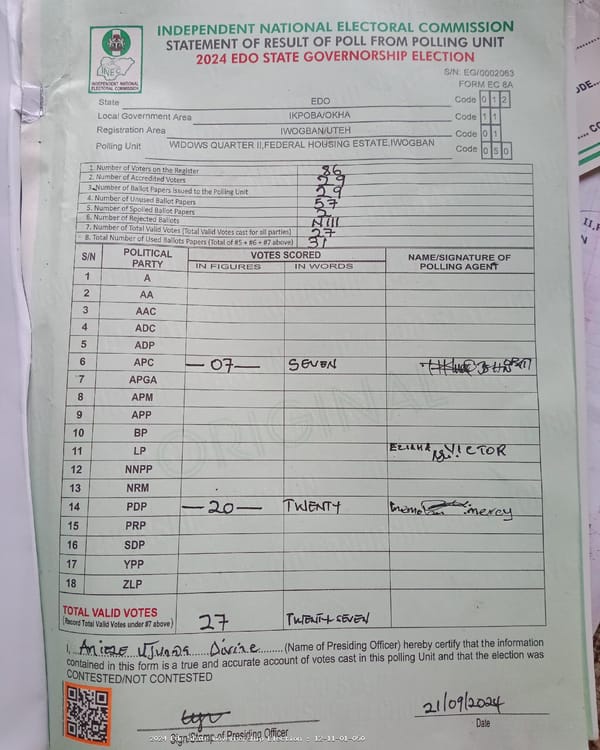 INDEPENDENT NATIONAL ELECTORAL COMMISSION
STATEMENT OF RESULT OF POLL FROM POLLING UNIT
2024 EDO STATE GOVERNORSHIP ELECTION
INEC
INDEPENDENT NATIONAL
ELECTORAL COMMISSION
S/N: EG/0002063
FORM EC 8A
State EDO Code 0 1 2
Local Government Area IKPOBA/OKHA Code 1 1
Registration Area IWOGBAN/UTEH Code 0 1
Polling Unit WIDOWS QUARTER II,FEDERAL HOUSING ESTATE,IWOGBAN Code 0 5 0
1. Number of Voters on the Register 86
2. Number of Accredited Voters 29
3. Number of Ballot Papers issued to the Polling Unit 29
4. Number of Unused Ballot Papers 57
5. Number of Spoiled Ballot Papers 2
6. Number of Rejected Ballots Nill
7. Number of Total Valid Votes (Total Valid Votes cast for all parties) 27
8. Total Number of Used Ballots Papers (Total of #5 + #6 + #7 above) 31
S/N POLITICAL PARTY VOTES SCORED NAME/SIGNATURE OF POLLING AGENT
IN FIGURES IN WORDS
1 A
2 AA
3 AAC
4 ADC
5 ADP
6 APC —07— SEVEN
7 APGA
8 APM
9 APP
10 BP
11 LP VICTOR
12 NNPP
13 NRM
14 PDP —20— TWENTY mercy
15 PRP
16 SDP
17 YPP
18 ZLP
ORIGINAL
TOTAL VALID VOTES 27 TWENTY SEVEN
(Record Total Valid Votes under #7 above)
I, Divine (Name of Presiding Officer) hereby certify that the information
contained in this form is a true and accurate account of votes cast in this polling Unit and that the election was
CONTESTED/NOT CONTESTED
21/09/2024
Sign/Stamp of Presiding Officer Date